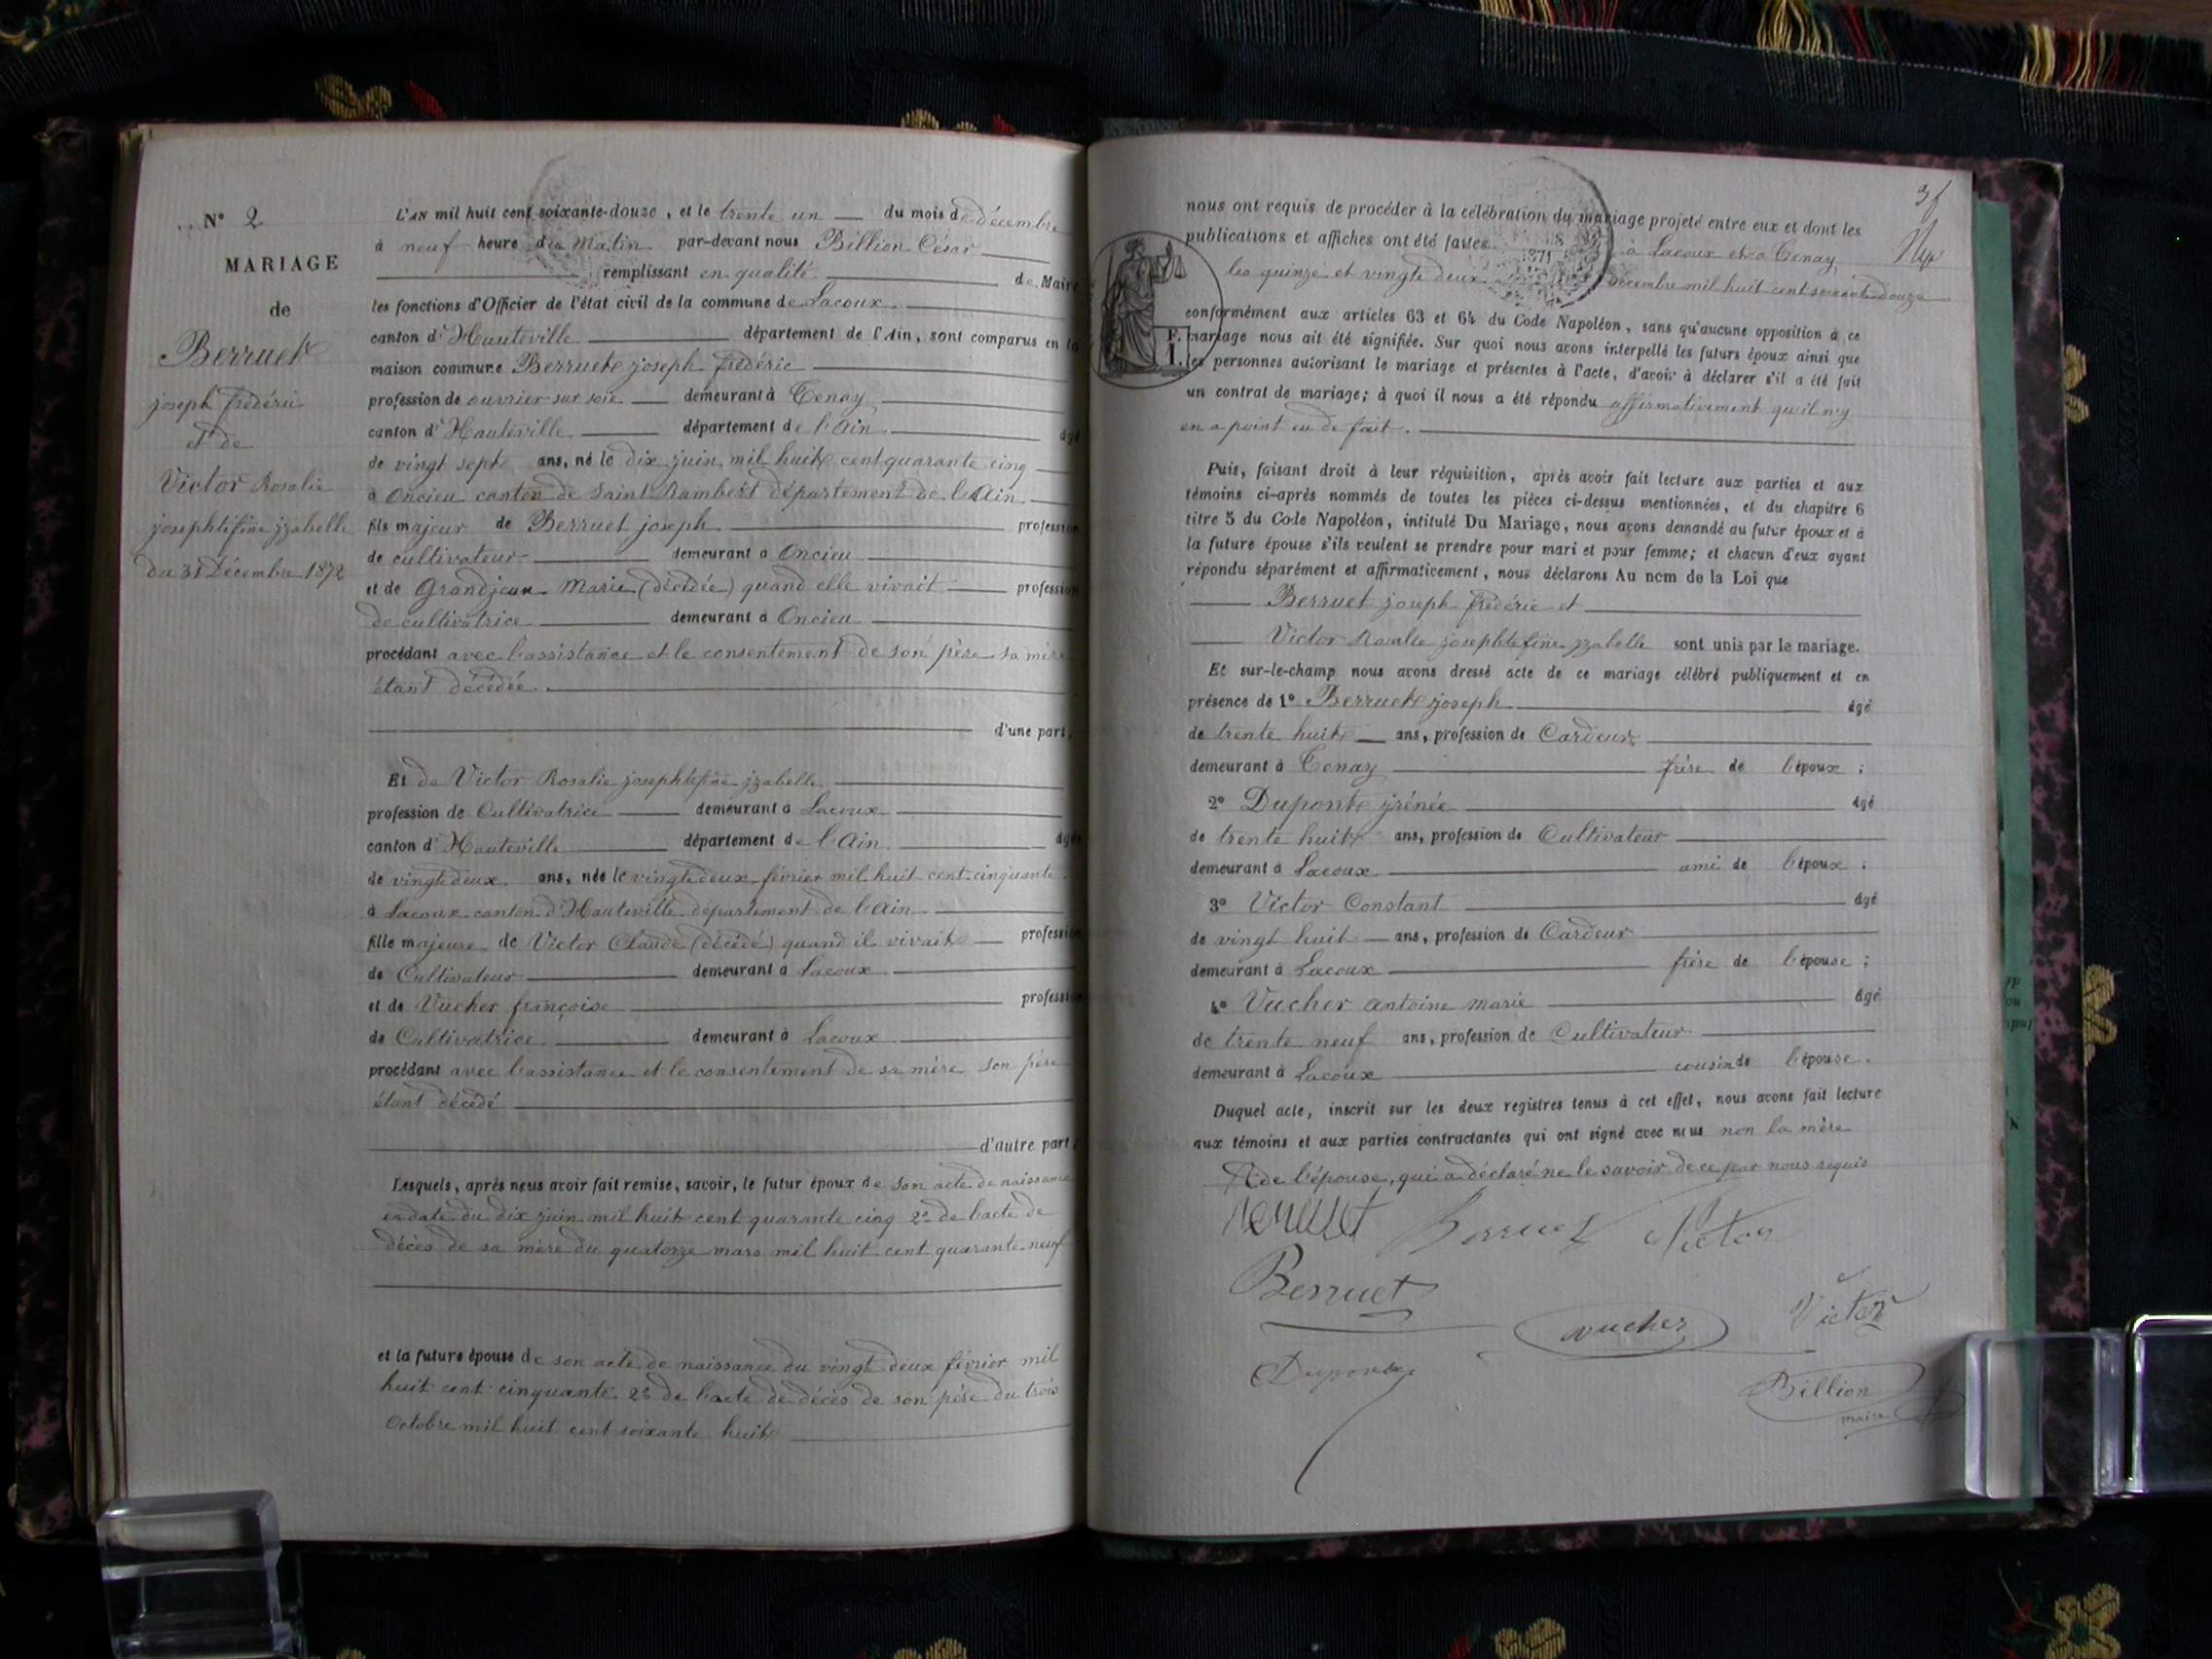 N° 2
MARIAGE
de
Berruet
joseph frédéric
et de
Victor Rosalie
josephtefine jzabelle
du 31 Décembre 1872
L'AN mil huit cent soixante-douze, et le trente un du mois de décembre
à neuf heure du Matin par-devant nous Billion César
remplissant en qualité de Maire
les fonctions d'Officier de l'état civil de la commune de Lacoux
canton d'Hauteville département de l'Ain, sont comparus en la
maison commune Berruet joseph frédéric
profession de ouvrier sur soie demeurant à Tenay
canton d'Hauteville département de l'Ain âgé
de vingt sept ans, né le dix juin mil huit cent quarante cinq
à Oncieu canton de Saint Rambert département de l'Ain
fils majeur de Berruet joseph profession
de cultivateur demeurant à Oncieu
et de Grandjean Marie (décédée) quand elle vivait profession
de cultivatrice demeurant à Oncieu
procédant avec l'assistance et le consentement de son père sa mère
étant décédée.
d'une part.
Et de Victor Rosalie josephtefine jzabelle
profession de Cultivatrice demeurant à Lacoux
canton d'Hauteville département de l'Ain âgée
de vingt deux ans, née le vingt deux février mil huit cent cinquante
à Lacoux canton d'Hauteville département de l'Ain
fille majeure de Victor Claude (décédé) quand il vivait profession
de Cultivateur demeurant à Lacoux
et de Vucher françoise profession
de Cultivatrice demeurant à Lacoux
procédant avec l'assistance et le consentement de sa mère son père
étant décédé
d'autre part.
Lesquels, après nous avoir fait remise, savoir, le futur époux de son acte de naissance
en date du dix juin mil huit cent quarante cinq 2° de l'acte de
décès de sa mère du quatorze mars mil huit cent quarante neuf
et la future épouse de son acte de naissance du vingt deux février mil
huit cent cinquante 2° de l'acte de décès de son père du trois
Octobre mil huit cent soixante huit
nous ont requis de procéder à la célébration du mariage projeté entre eux et dont les
publications et affiches ont été faites à Lacoux et à Tenay
1871
les quinze et vingt deux Décembre mil huit cent soixante douze
conformément aux articles 63 et 64 du Code Napoléon, sans qu'aucune opposition à ce
mariage nous ait été signifiée. Sur quoi nous avons interpellé les futurs époux ainsi que
les personnes autorisant le mariage et présentes à l'acte, d'avoir à déclarer s'il a été fait
un contrat de mariage; à quoi il nous a été répondu affirmativement qu'il n'y
en a point eu de fait.
Puis, faisant droit à leur réquisition, après avoir fait lecture aux parties et aux
témoins ci-après nommés de toutes les pièces ci-dessus mentionnées, et du chapitre 6
titre 5 du Code Napoléon, intitulé Du Mariage, nous avons demandé au futur époux et à
la future épouse s'ils veulent se prendre pour mari et pour femme; et chacun d'eux ayant
répondu séparément et affirmativement, nous déclarons Au nom de la Loi que
Berruet joseph frédéric et
Victor Rosalie josephtefine jzabelle sont unis par le mariage.
Et sur-le-champ nous avons dressé acte de ce mariage célébré publiquement et en
présence de 1° Berruet joseph âgé
de trente huit ans, profession de Cardeur
demeurant à Tenay frère de l'époux;
2° Dupont jrénée âgé
de trente huit ans, profession de Cultivateur
demeurant à Lacoux ami de l'époux;
3° Victor Constant âgé
de vingt huit ans, profession de Cardeur
demeurant à Lacoux frère de l'épouse;
4° Vucher antoine marie âgé
de trente neuf ans, profession de Cultivateur
demeurant à Lacoux cousin de l'épouse.
Duquel acte, inscrit sur les deux registres tenus à cet effet, nous avons fait lecture
aux témoins et aux parties contractantes qui ont signé avec nous non la mère
de l'épouse, qui a déclaré ne le savoir de ce par nous requis
Berruet Victor
Berruet vucher Victor
Dupont Billion
maire